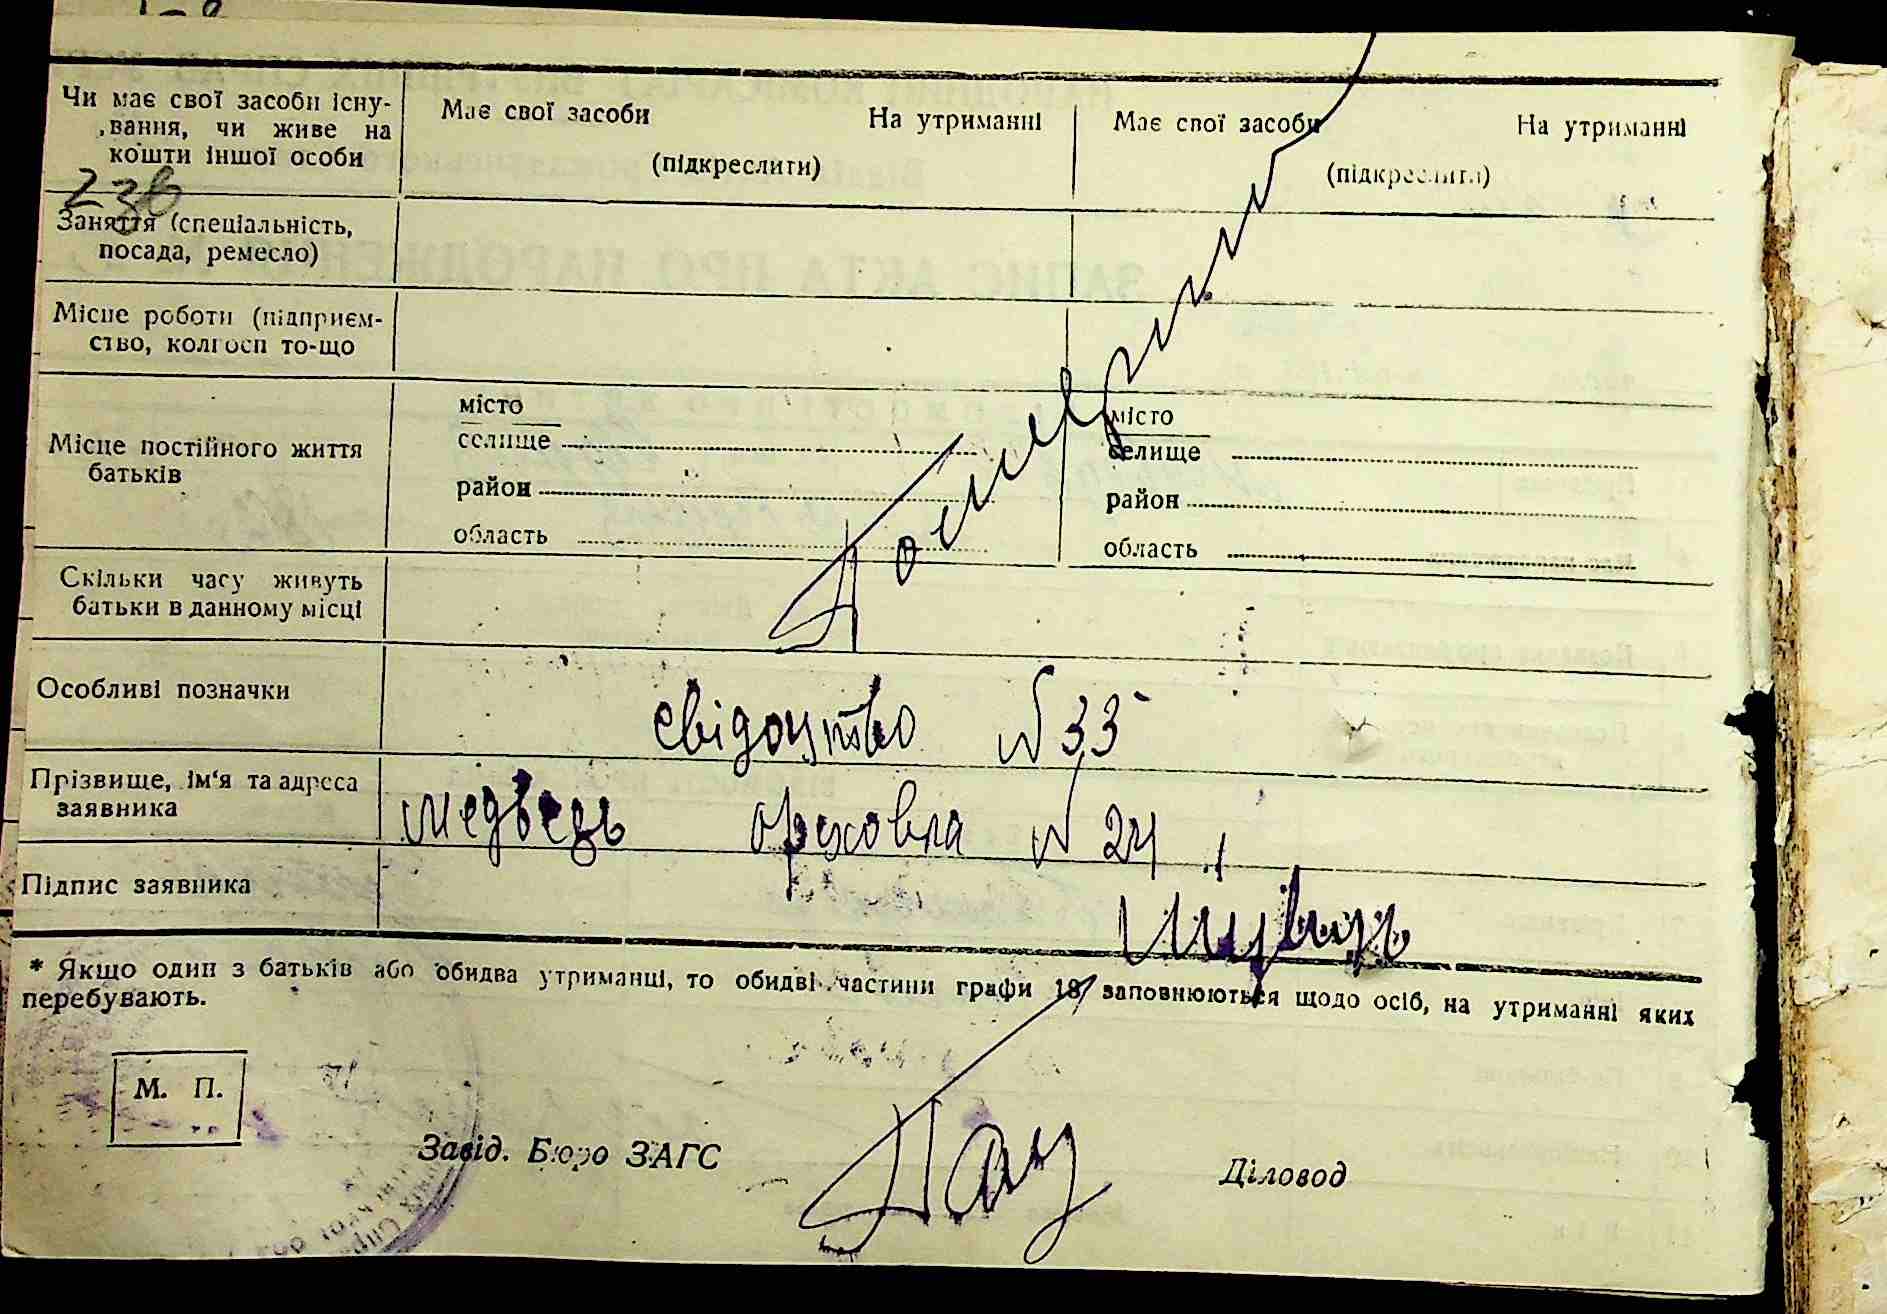 Чи має свої засоби існу-
вання, чи живе на
кошти іншої особи
Має свої засоби На утриманні
(підкреслити)
Має свої засоби На утриманні
(підкреслити)
236
Заняття (спеціальність,
посада, ремесло)
Місце роботи (підприєм-
ство, колгосп то-що
Місце постійного життя
батьків
місто
селище
район
область
місто
селище
район
область
Скільки часу живуть
батьки в данному місці
Особливі позначки
свідоцтво N 33
Прізвище, ім'я та адреса
заявника
Медведь N 24
Підпис заявника
* Якщо один з батьків або обидва утриманці, то обидві частини графи 18 заповнюються щодо осіб, на утриманні яких
перебувають.
М. П.
Завід. Бюро ЗАГС
Діловод